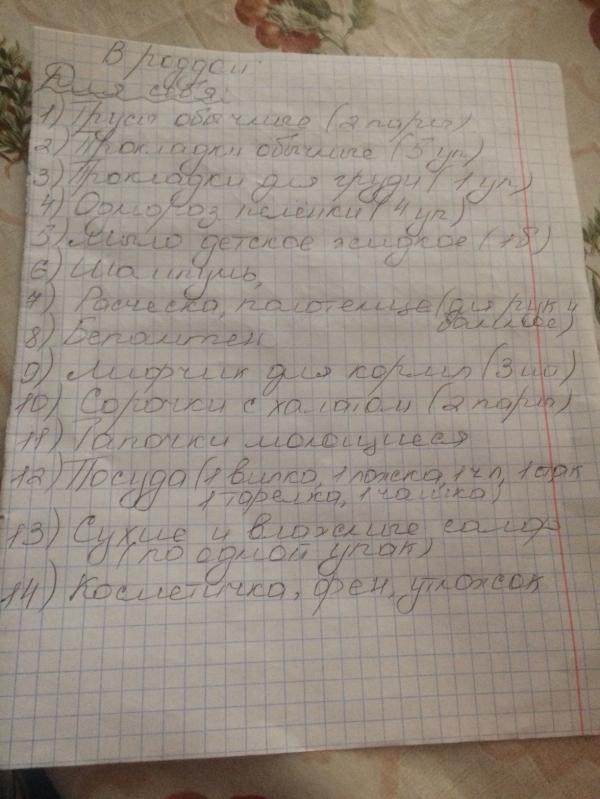 В роддом
Для себя:
1) Трусы обычные (2 пары)
2) Прокладки обычные (5 уп)
3) Прокладки для груди (1 уп)
4) Однораз пелёнки (4 уп)
5) Мыло детское жидкое (1б)
6) Шампунь,
7) Расческа, полотенце (для рук и
банное)
8) Бепантен
9) Лифчик для кормл (3 шт)
10) Сорочки с халатом (2 пары)
11) Тапочки моющиеся
12) Посуда (1 вилка, 1 ложка, 1 чл,
1 тарелка, 1 чашка)
13) Сухие и влажные салф
(по одной упак)
14) Косметичка, фен, утюжок